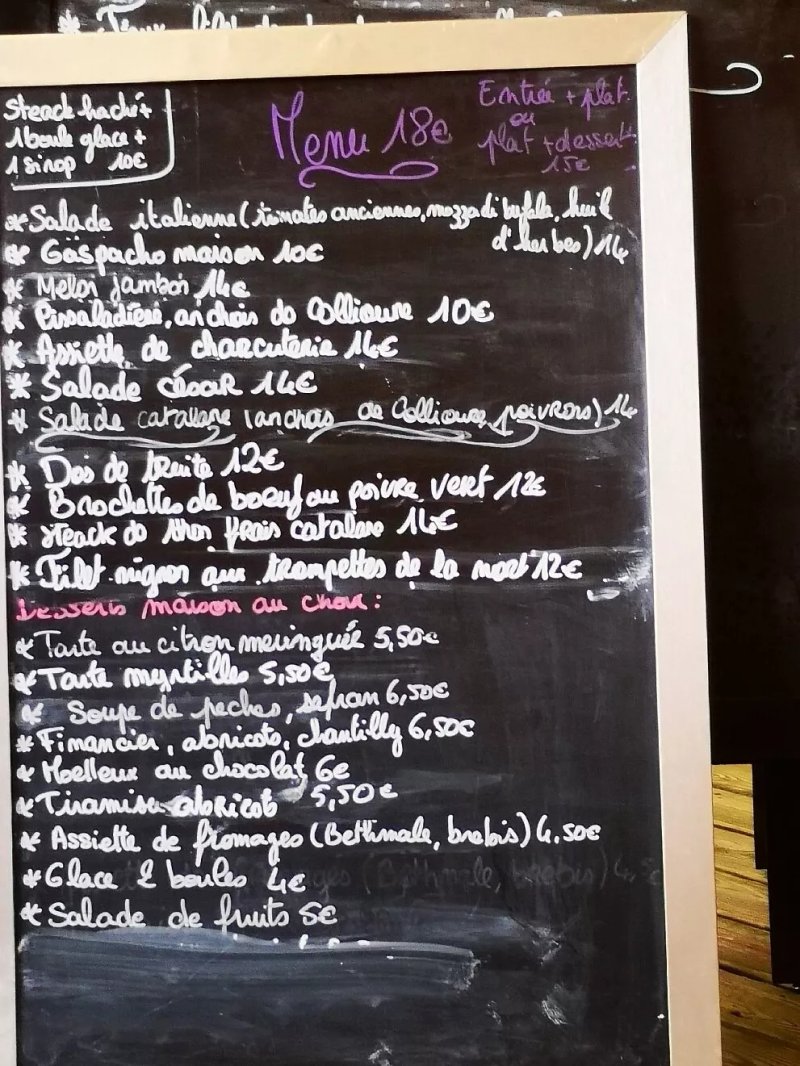 Steack haché +
1 boule glace +
1 sirop 10€
Menu 18€
Entrée + plat
ou
plat + dessert
15€
* Salade italienne (tomates anciennes, mozza di bufala, huil
d'herbes) 14
* Gaspacho maison 10€
* Melon jambon 14€
* Pissaladière, anchois de Collioure 10€
* Assiette de charcuterie 14€
* Salade césar 14€
* Salade catalane (anchois de Collioure, poivrons) 14
* Dos de truite 12€
* Brochettes de boeuf au poivre vert 12€
* Steack de thon frais catalane 14€
* Filet mignon aux trompettes de la mort 12€
Desserts maison au choix :
* Tarte au citron meringuée 5,50€
* Tarte myrtilles 5,50€
* Soupe de peches, safran 6,50€
* Financier, abricots, chantilly 6,50€
* Moelleux au chocolat 6€
* Tiramisu abricots 5,50€
* Assiette de fromages (Bethmale, brebis) 4,50€
* Glace 2 boules 4€
* Salade de fruits 5€